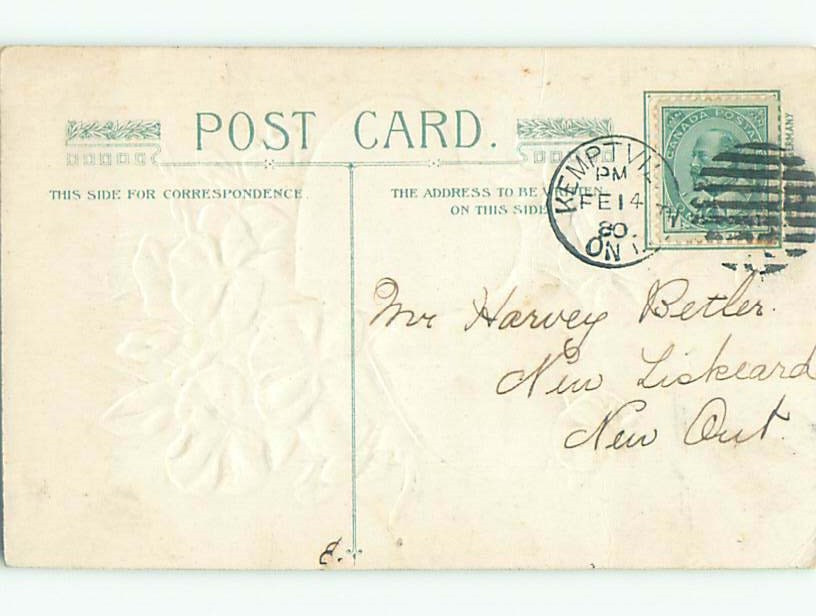 POST CARD.
THIS SIDE FOR CORRESPONDENCE.
THE ADDRESS TO BE WRITTEN
ON THIS SIDE
CANADA POSTA
ERMANY
KEMPTVI
PM
FE 14
80.
ONT.
Mr Harvey Betler.
New Liskeard
New Ont.
E.